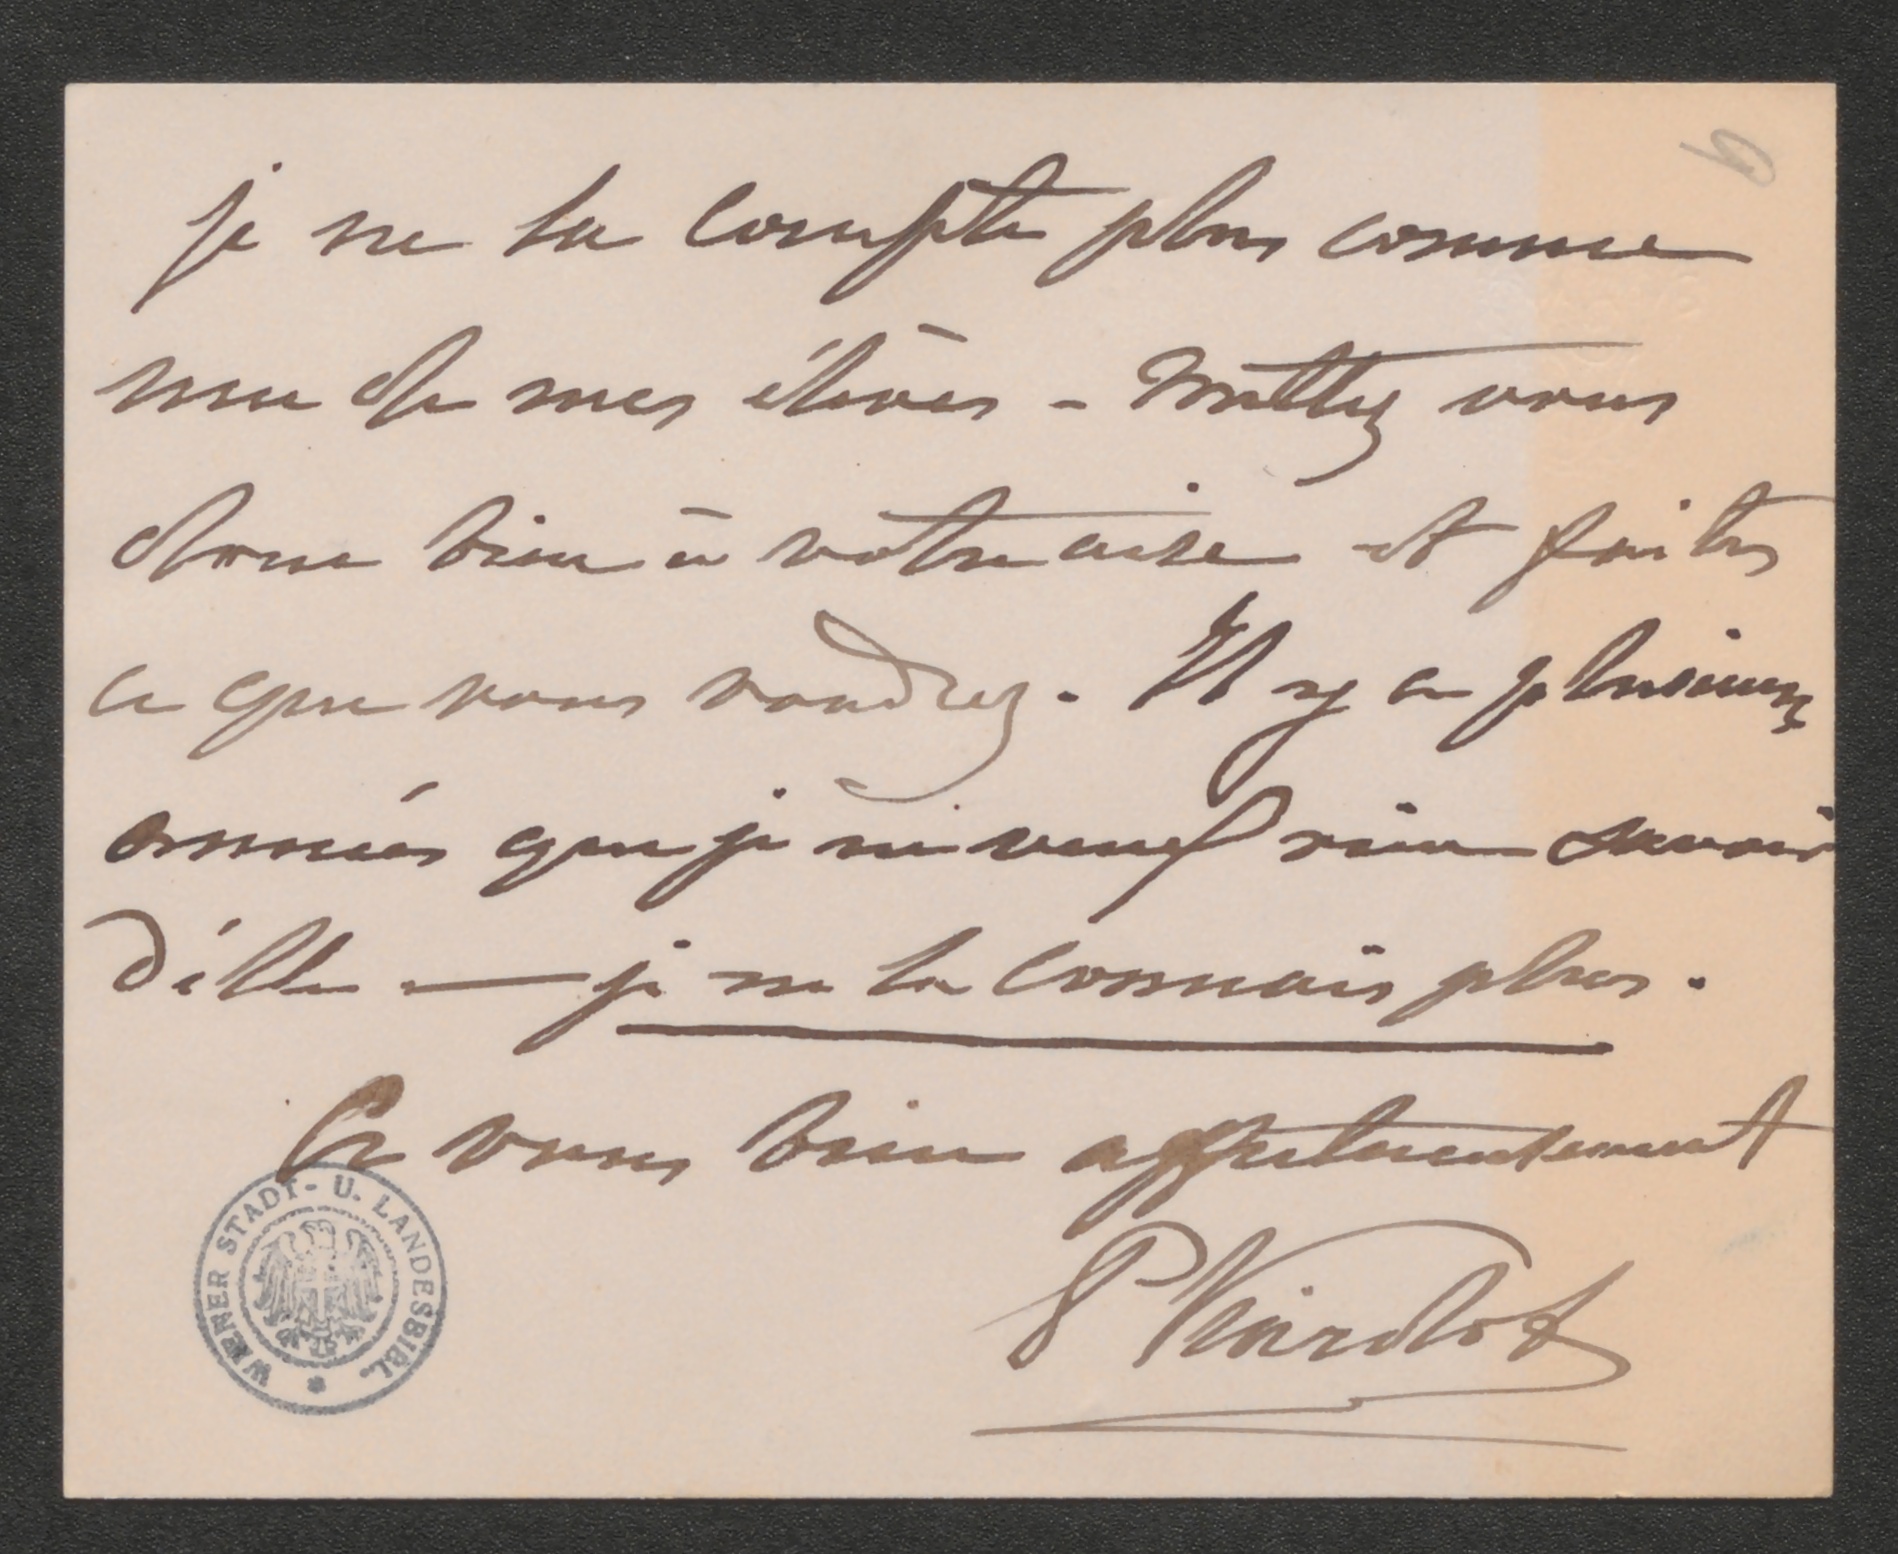 je ne la compte plus comme
une de mes élèves - Mettez vous
donc bien à votre aise et faites
ce que vous voudrez. Il y a plusieurs
années que je ne veux rien savoir
d'elle — je ne la connais plus.
à vous bien affectueusement
P Viardot
WIENER STADT- U. LANDESBIBL.